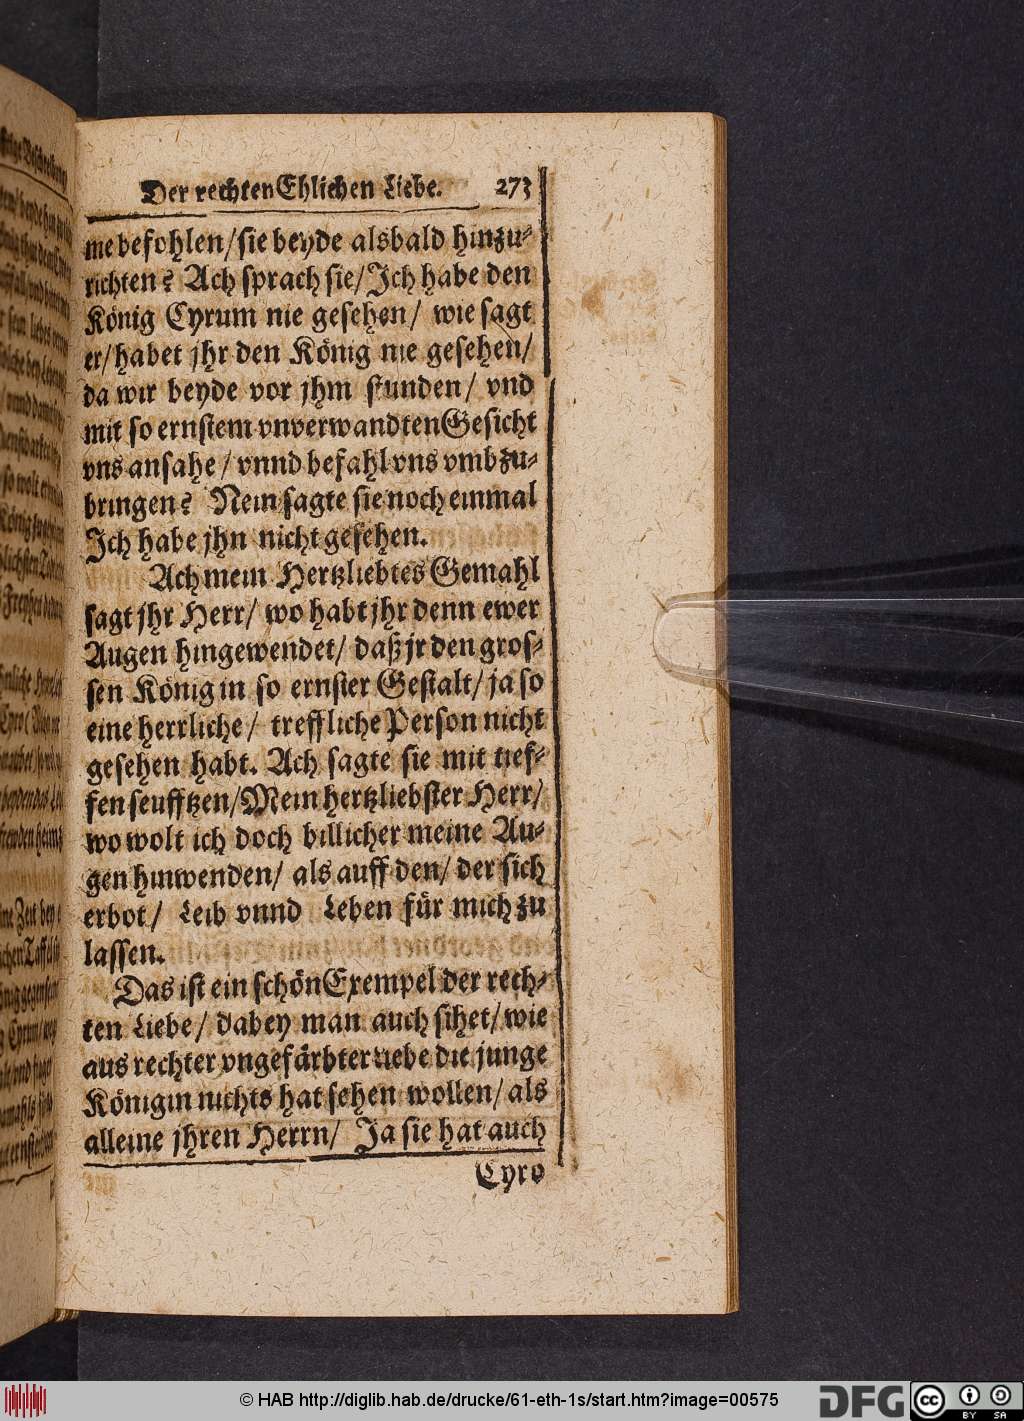 Der rechten Ehlichen Liebe. 273
me befohlen/ sie beyde alsbald hinzu-
richten? Ach sprach sie/ Ich habe den
König Cyrum nie gesehen/ wie sagt
er/ habet jhr den König nie gesehen/
da wir beyde vor jhm stunden/ vnd
mit so ernstem vnverwandten Gesicht
vns ansahe/ vnnd befahl vns vmbzu-
bringen? Nein sagte sie noch einmal
Ich habe jhn nicht gesehen.
Ach mein Hertzliebtes Gemahl
sagt jhr Herr/ wo habt jhr denn ewer
Augen hingewendet/ daß jr den gros-
sen König in so ernster Gestalt/ ja so
eine herrliche/ treffliche Person nicht
gesehen habt. Ach sagte sie mit tief-
fen seufftzen/ Mein hertzliebster Herr/
wo wolt ich doch billicher meine Au-
gen hinwenden/ als auff den/ der sich
erbot/ Leib vnnd Leben für mich zu
lassen.
Das ist ein schön Exempel der rech-
ten Liebe/ dabey man auch sihet/ wie
aus rechter vngefärbter Liebe die junge
Königin nichts hat sehen wollen/ als
alleine jhren Herrn/ Ja sie hat auch
Cyro
© HAB http://diglib.hab.de/drucke/61-eth-1s/start.htm?image=00575
DFG
CC BY SA